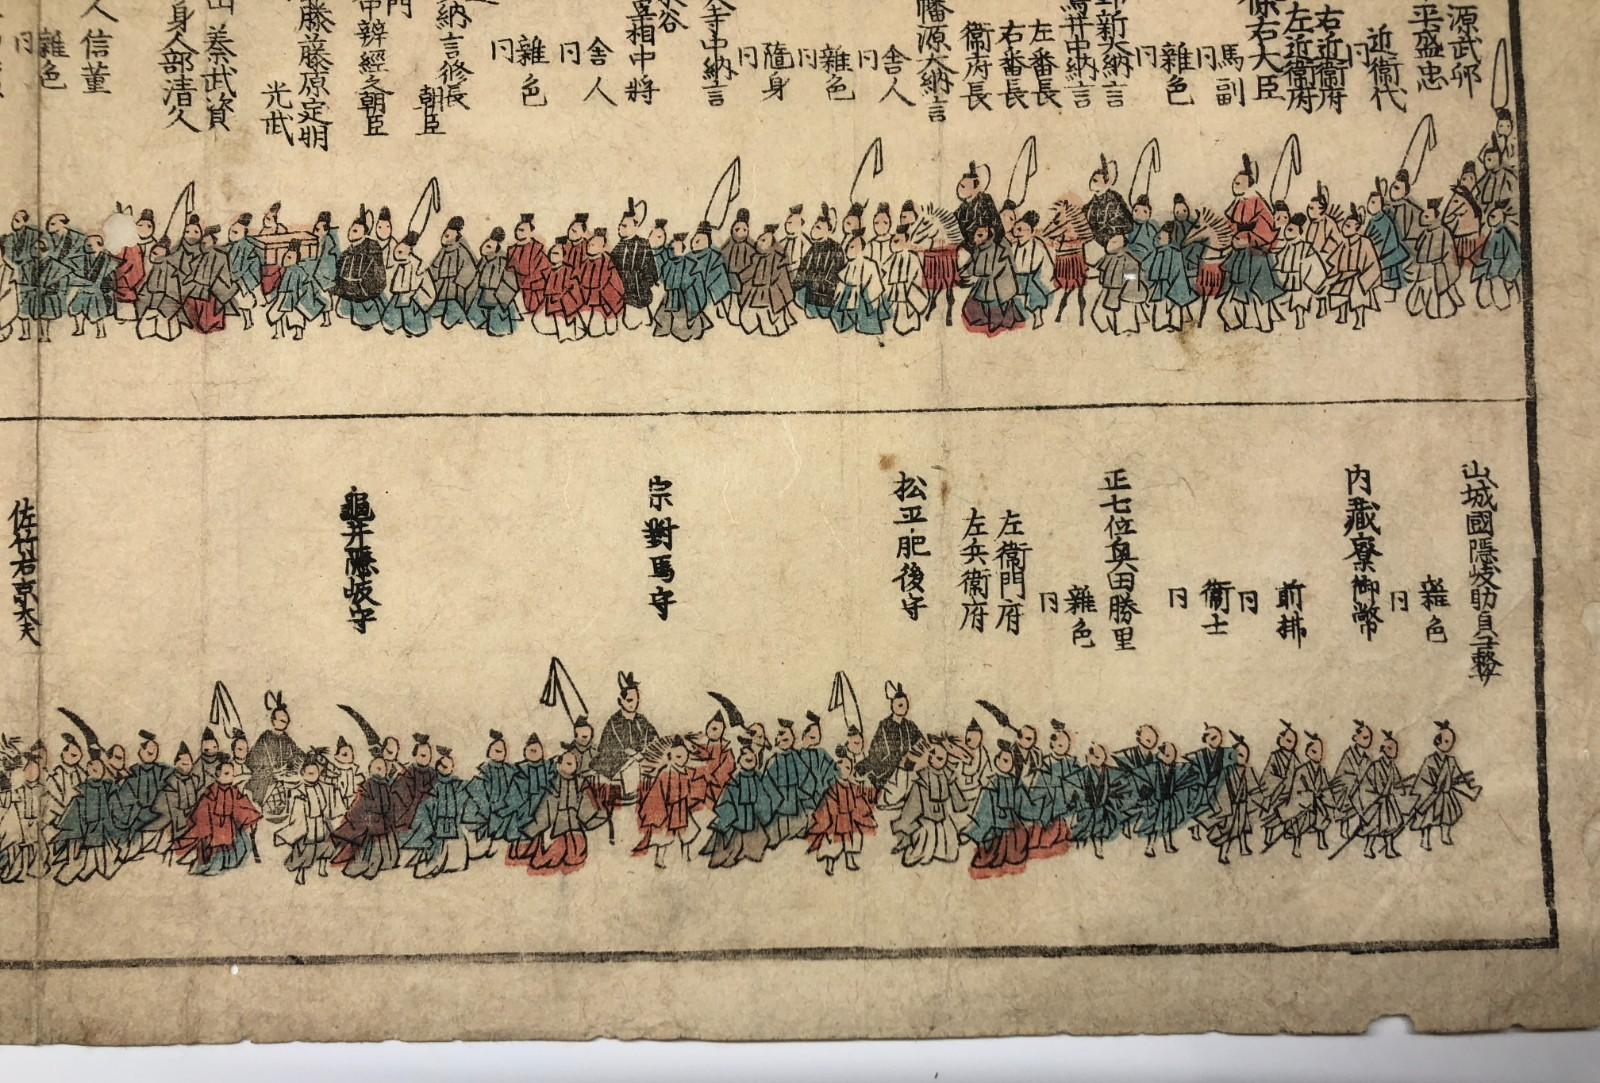 源武
平盛忠
近衛代
右近衛府
左近衛府
右大臣
馬副
雜色
新大納言
井中納言
左番長
右番長
衛府長
幡源大納言
舎人
雜色
隨身
寺中納言
宰相中将
舎人
雜色
納言修長
朝臣
中辨經之朝臣
藤藤原定明
光武
秦武資
身人部清久
人信董
雜色
山城國隱岐助貞
雜色
内藏寮御幣
前拂
衛士
正七位奥田勝里
雜色
左衛門府
左兵衛府
松平肥後守
宗對馬守
龜井隱岐守
佐竹右京大夫